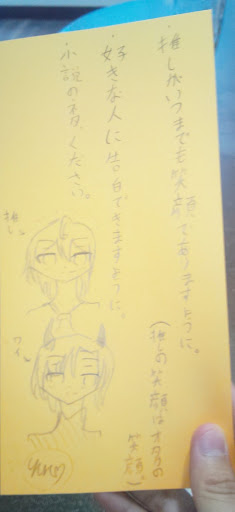 ・推しがいつまでも笑顔でありますように。
(推しの笑顔はオタクの
笑顔。)
・好きな人に告白できますように。
・小説のネタください。
推し。
ワイ。